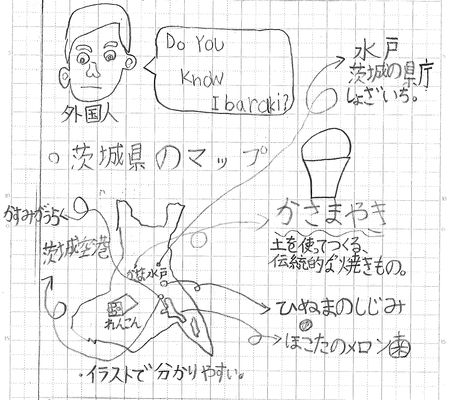 Do You
Know
Ibaraki?
外国人
水戸
茨城の県庁
しょざいち。
○茨城県のマップ
かすみがうら
茨城空港
かさまやき
土を使ってつくる、
伝統的な焼きもの。
かさま
水戸
れんこん
ひぬまのしじみ
ほこたのメロン
・イラストで分かりやすい。